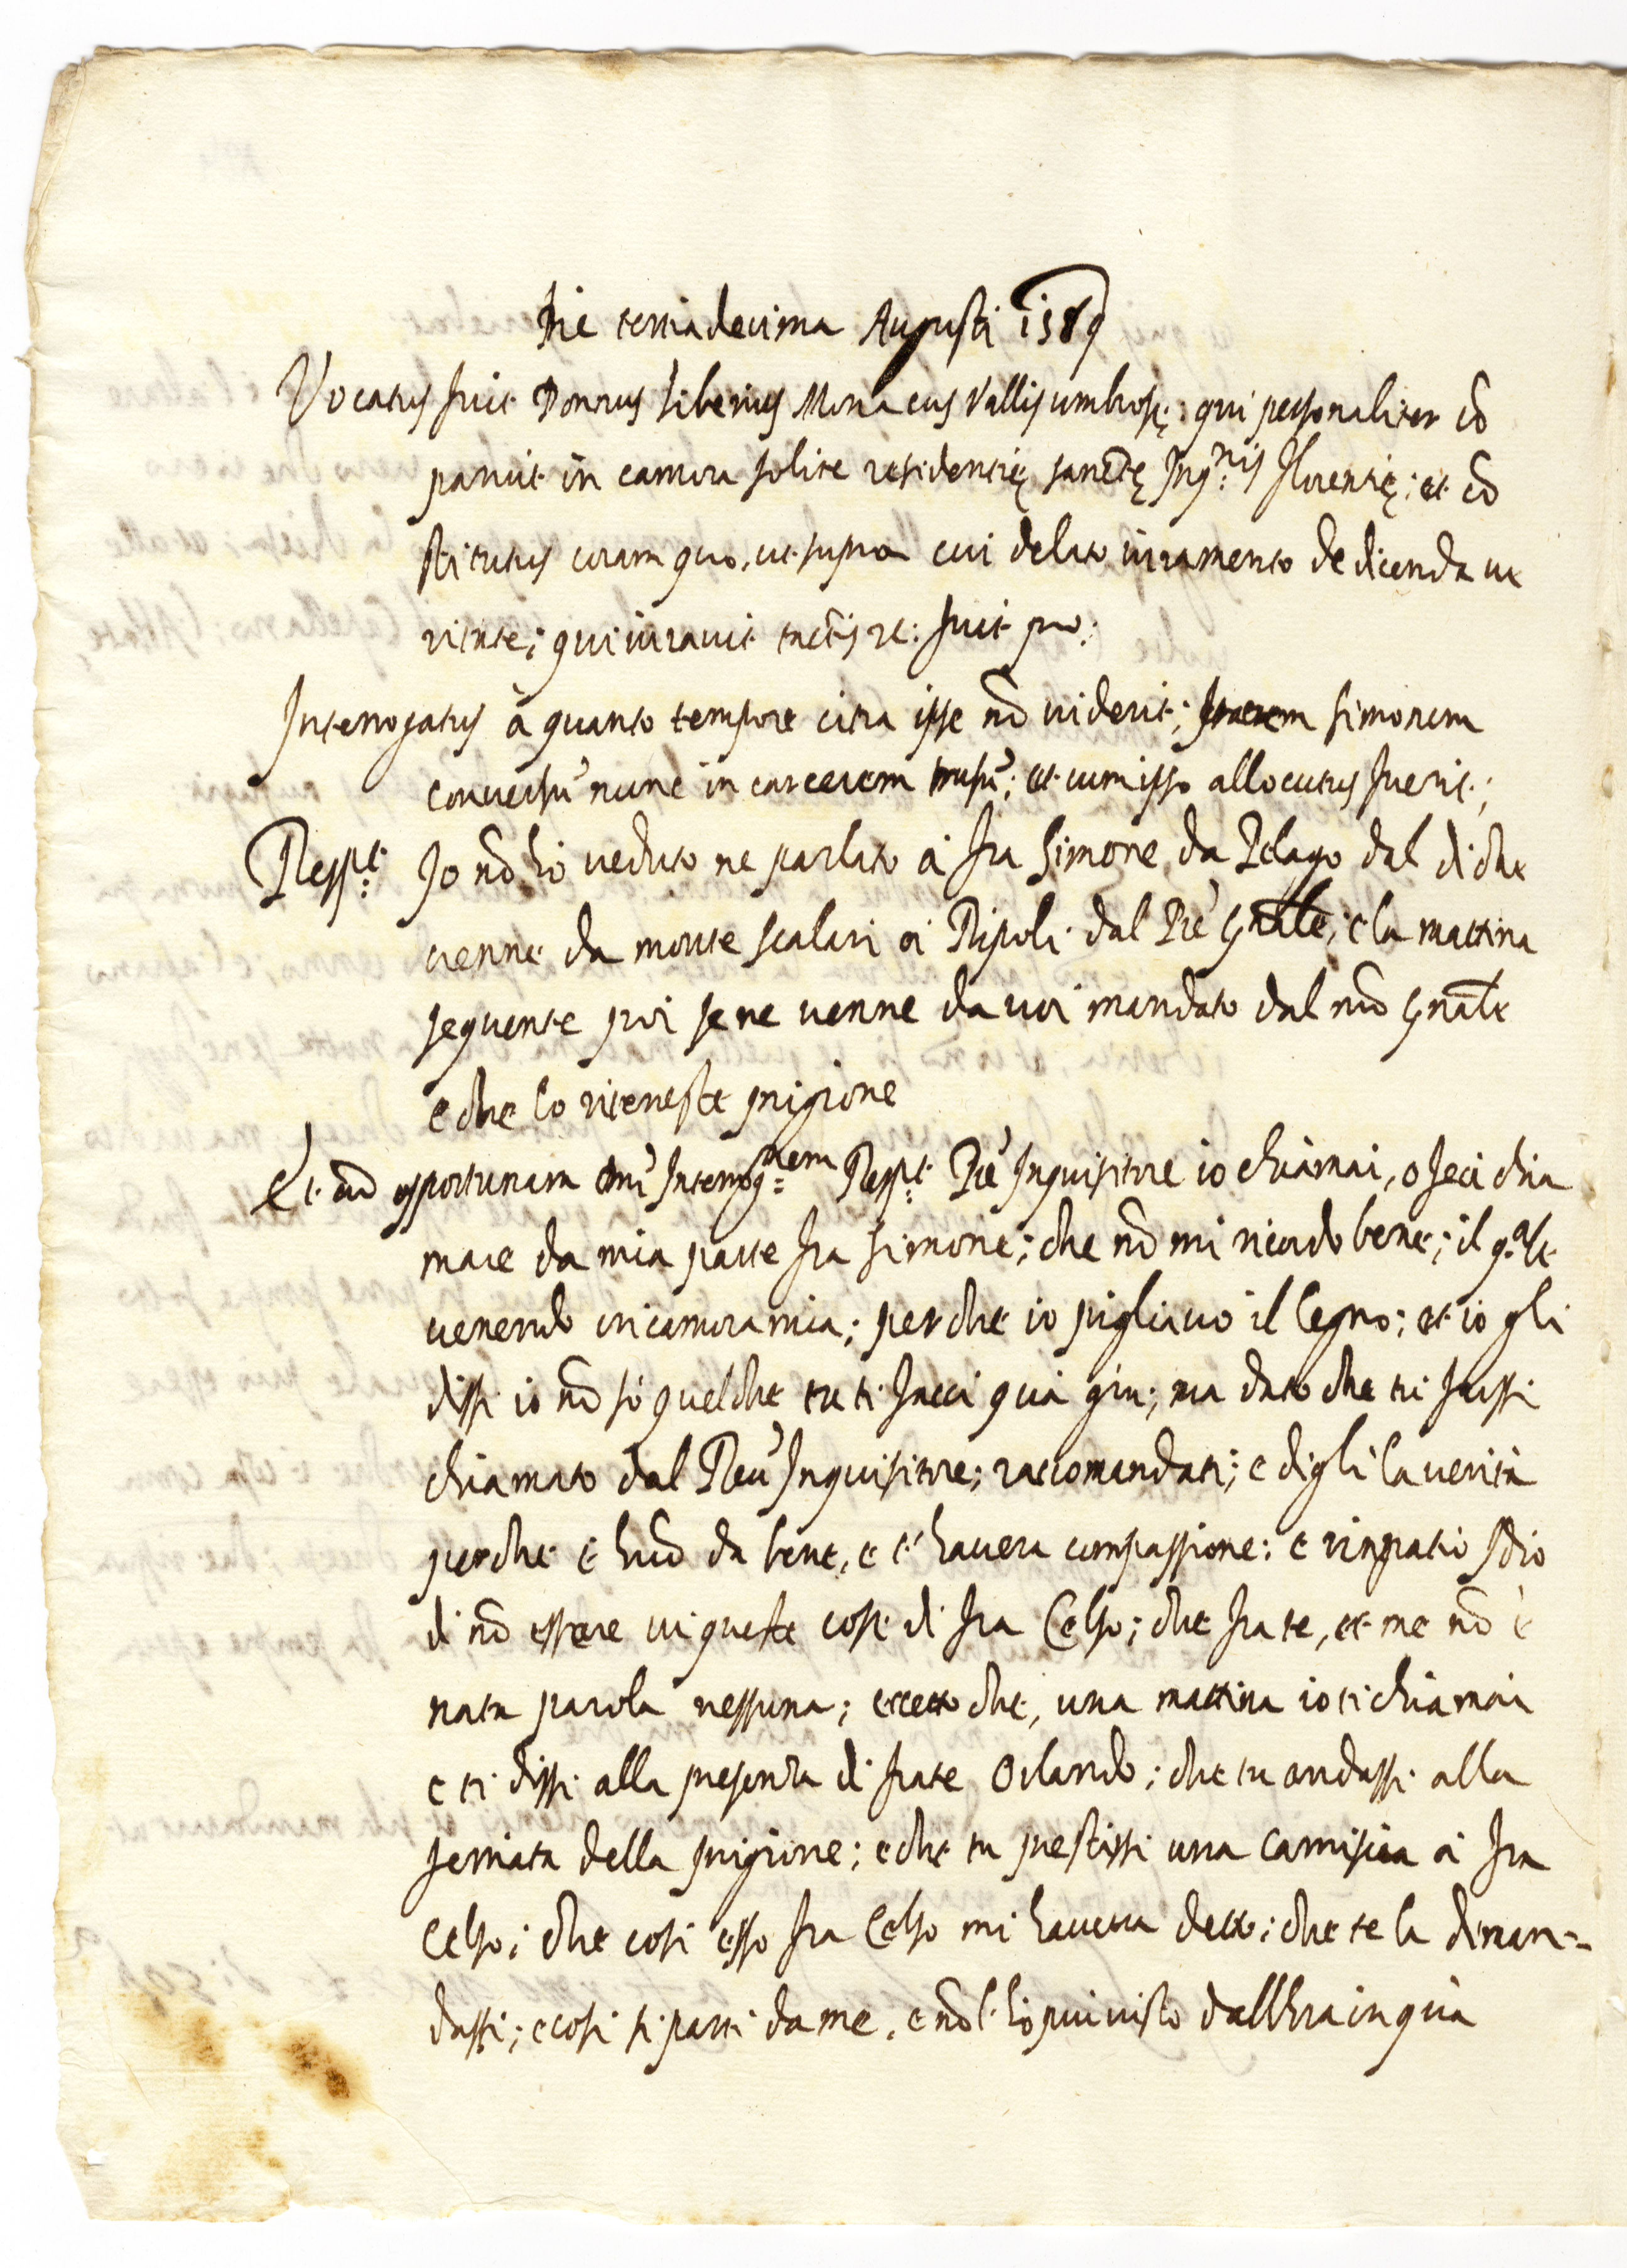 Die tertiadecima Augusti 1589
Vocatus fuit Donnus Tiberius Monacus Vallisumbrosę: qui personaliter cō
paruit in camera solite residentię sanctę Inq.nis Florentię; et cō
stitutus coram quo, ut supra cui delato iuramento de dicenda ue
ritate; qui iurauit tactis re: fuit pro:
Interrogatus à quanto tempore citra ipse nō uiderit; fratrem Simonem
conuersū nunc in carcerem ; et cum ipso allocutus fuerit;
Resp.t Io nō hò ueduto ne parlato à fra Simone da Pelago dal di che
uenne da monte scalari à Ripoli dal Prē Gnāle; e la mattina
sequente poi se ne uenne da uoi mandato dal nrō Gnāle
e che lo riteneste prigione
Et ad opportunam Dni Interrog.nem Resp.t Prē Inquisitore io chiamai, o feci chia
mare da mia parte fra Simone; che nō mi ricordo bene; il q.ale
uenendo in camera mia; perche io pigliauo il legno; et io gli
dissi io nō sò quelche tu ti facci quà giu; ma dato che tu fussi
chiamato dal Reū Inquisitore; raccomandati; e digli la uerità
perche è huō da bene, e t' hauera compassione: e ringratio Idio
di nō essere in queste cose di fra Celso; che fra te, et me nō è
nata parola nessuna; eccetto che, una mattina io ti chiamai
e ti dissi alla presentia di frate Orlando; che tu andassi alla
serrata della prigione; e che tu prestassi una camiscia à fra
Celso; che cosi esso fra Celso mi haueua detto; che te la diman-
dassi; e cosi si parti da me, e nō l' hò piu uisto dall'hra in quà